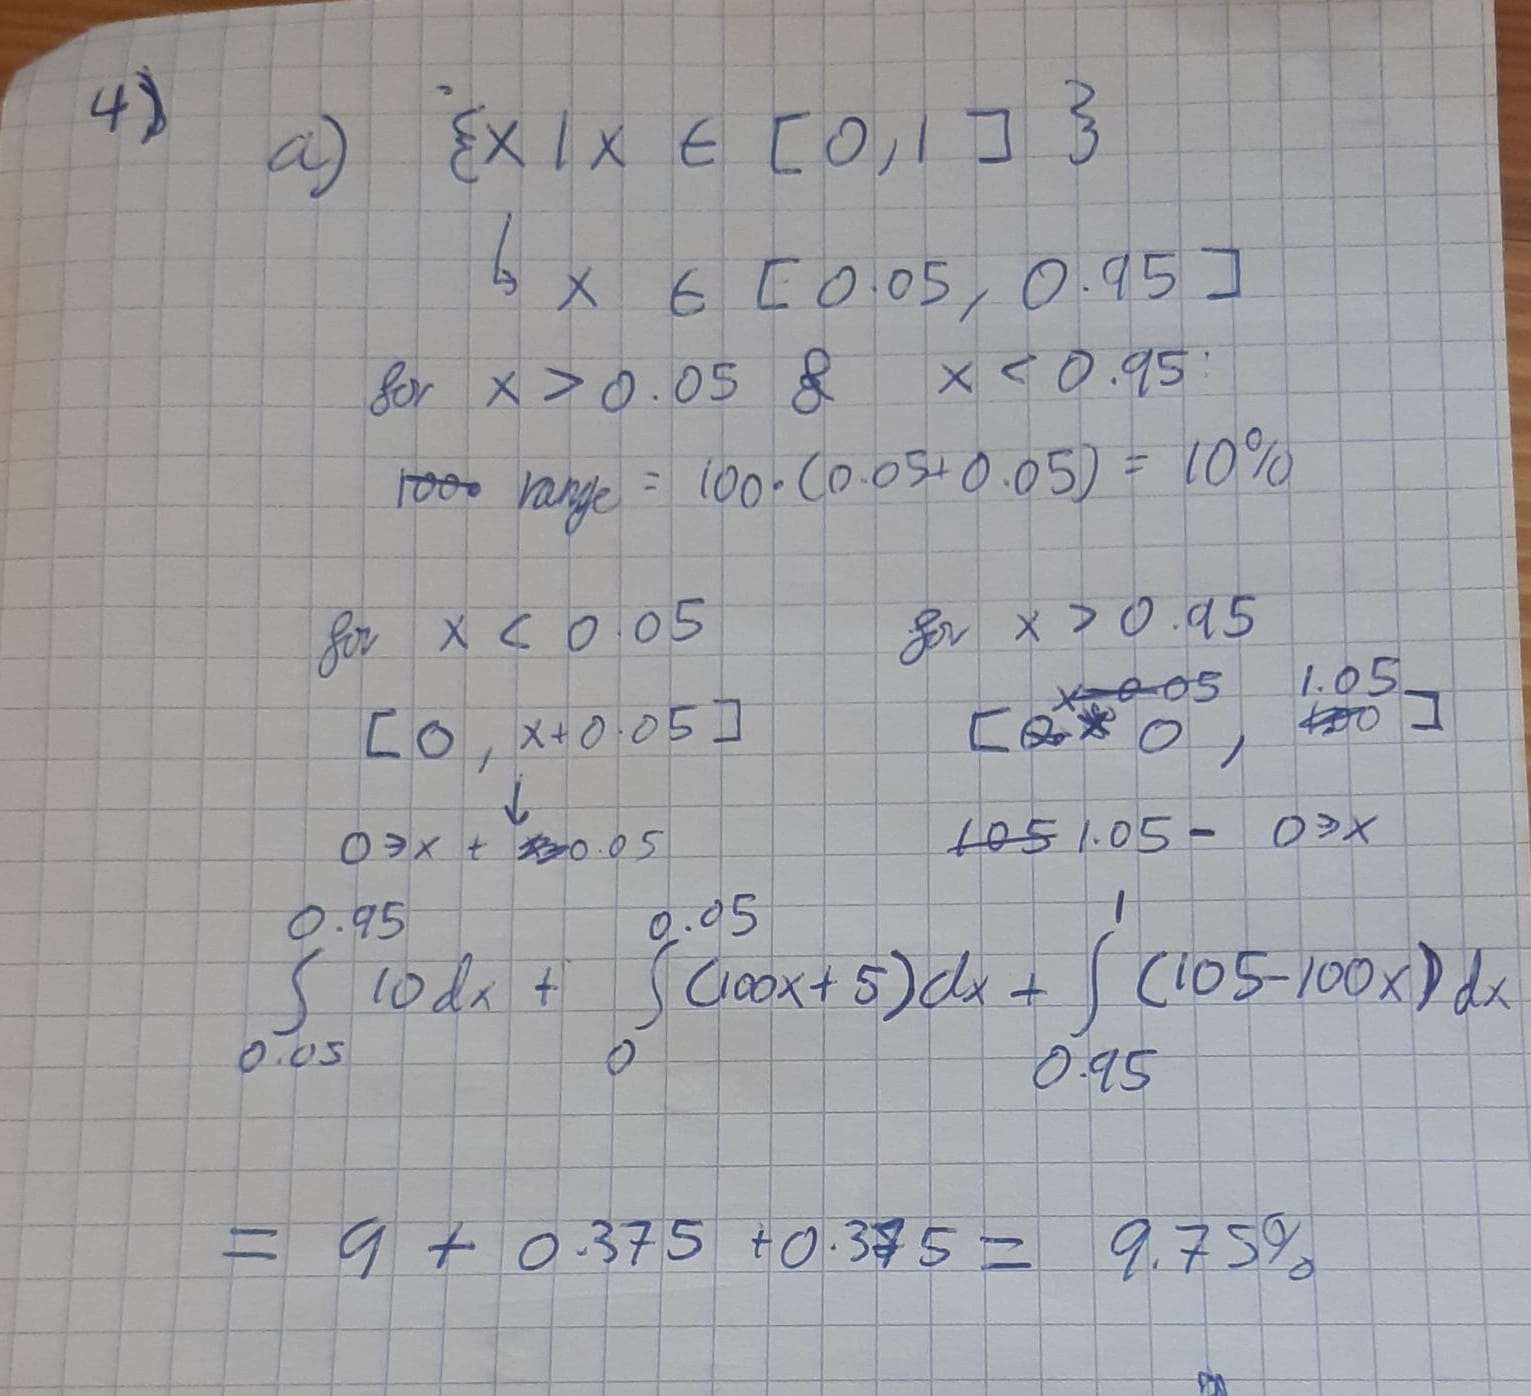 4)
a) {x | x ∈ [0,1]}
↳ x ∈ [0.05, 0.95]
for x > 0.05 & x < 0.95:
range = 100·(0.05+0.05) = 10%
for x < 0.05 for x > 0.95
[0, x+0.05] [0, 1.05]
0→x + 0.05 1.05 - 0→x
∫_{0.05}^{0.95} 10dx + ∫_{0}^{0.05} (100x+5)dx + ∫_{0.95}^{1} (105-100x)dx
= 9 + 0.375 + 0.375 = 9.75%